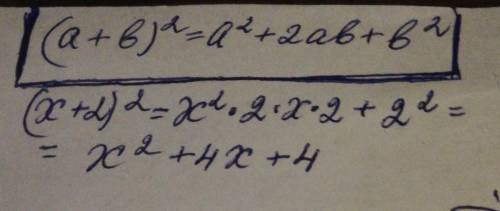 (a+b)²=a²+2ab+b²
(x+2)²=x²·2·x·2+2²=
= x²+4x+4